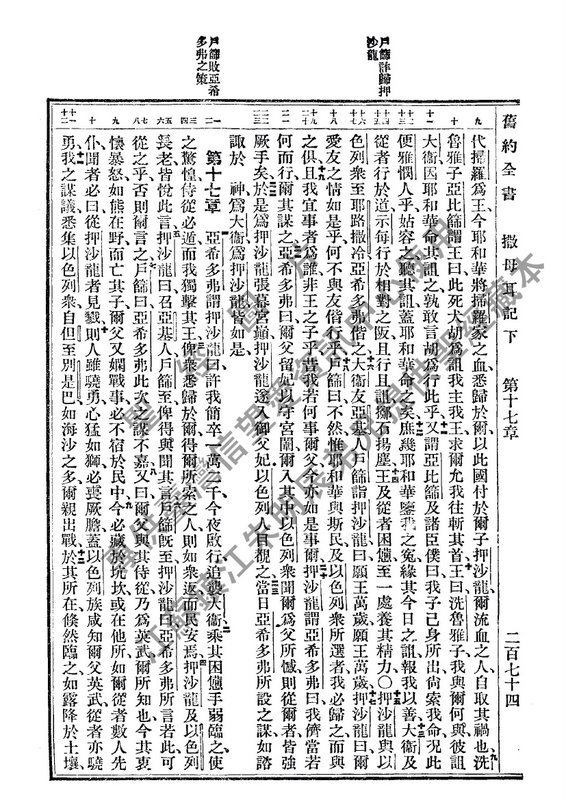 舊約全書 撒母耳記下 第十七章 二百七十四
戶篩詳歸押
沙龍
代掃羅爲王今耶和華將掃羅家之血悉歸於爾以此國付於爾子押沙龍爾流血之人自取其禍也洗
魯雅子亞比篩謂王曰此死犬胡爲詛我主我王求爾允我往斬其首王曰洗魯雅子我與爾何與彼詛
大衛因耶和華命其詛之孰敢言胡爲行此乎又謂亞比篩及諸臣僕曰我子己身所出尙索我命况此
便雅憫人乎姑容之聽其詛蓋耶和華命之矣庶幾耶和華鑒我之寃緣其今日之詛報我以善大衛及
從者行於道示每行於相對之阪且行且詛擲石揚塵王及從者困憊至一處養其精力〇押沙龍與以
色列衆至耶路撒冷亞希多弗偕之大衛友亞基人戶篩詣押沙龍曰願王萬歲願王萬歲押沙龍曰爾
愛友之情如是乎何不與友偕行乎戶篩曰不然惟耶和華與斯民及以色列衆所選者我必歸之而與
之俱且我宜事者爲誰非王之子乎昔我若何事爾父今亦如是事爾押沙龍謂亞希多弗曰我儕當若
何而行爾其謀之亞希多弗曰爾父留妃以守宮闈入其中以色列衆聞爾爲父所憾則從爾者皆強
厥手矣於是爲押沙龍張幕宮巔押沙龍遂入御父妃以色列人目覩之當日亞希多弗所設之謀如諮
諏於 神爲大衛爲押沙龍如是
第十七章 亞希多弗謂押沙龍曰許我簡卒一萬二千今夜啟行追襲大衛乘其困憊手弱臨之使
之驚惶侍從必遁而我獨擊其王俾衆悉歸於爾得爾所索之人則如衆返而民安焉押沙龍及以色列
長老皆悅此言押沙龍曰召亞基人戶篩至俾得與聞其言戶篩旣至押沙龍曰亞希多弗所言若此可
從之乎否則爾言之戶篩曰亞希多弗此次之謀不嘉又曰爾與其侍從乃爲英武爾所知也今其衷
懷暴怒如熊在野而亡其子爾父又嫻戰事必不宿於民中今必藏於坑坎或在他所如爾從者數人先
仆聞者必曰從押沙龍者見戮則人雖驍勇心猛如獅必喪厥膽蓋以色列族咸知爾父英武從者亦驍
勇我之謀議悉集以色列衆自但至別是巴如海沙之多爾親出戰於其所在倏然臨之如露降於土壤
戶篩敗亞希
多弗之策